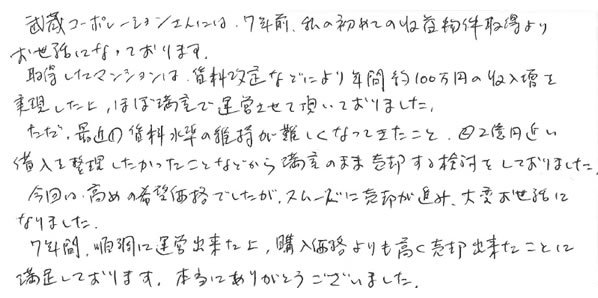 武蔵コーポレーションさんには、7年前、私の初めての収益物件取得より
お世話になっております。
取得したマンションは、賃料改定などにより年間約100万円の収入増を
実現した上、ほぼ満室で運営させて頂いておりました。
ただ、最近①賃料水準の維持が難しくなってきたこと、②2億円近い
借入を整理したかったことなどから満室のまま売却する検討をしておりました。
今回は、高めの希望価格でしたが、スムーズに売却が進み、大変お世話に
なりました。
7年間、順調に運営出来た上、購入価格よりも高く売却出来たことに
満足しております。本当にありがとうございました。